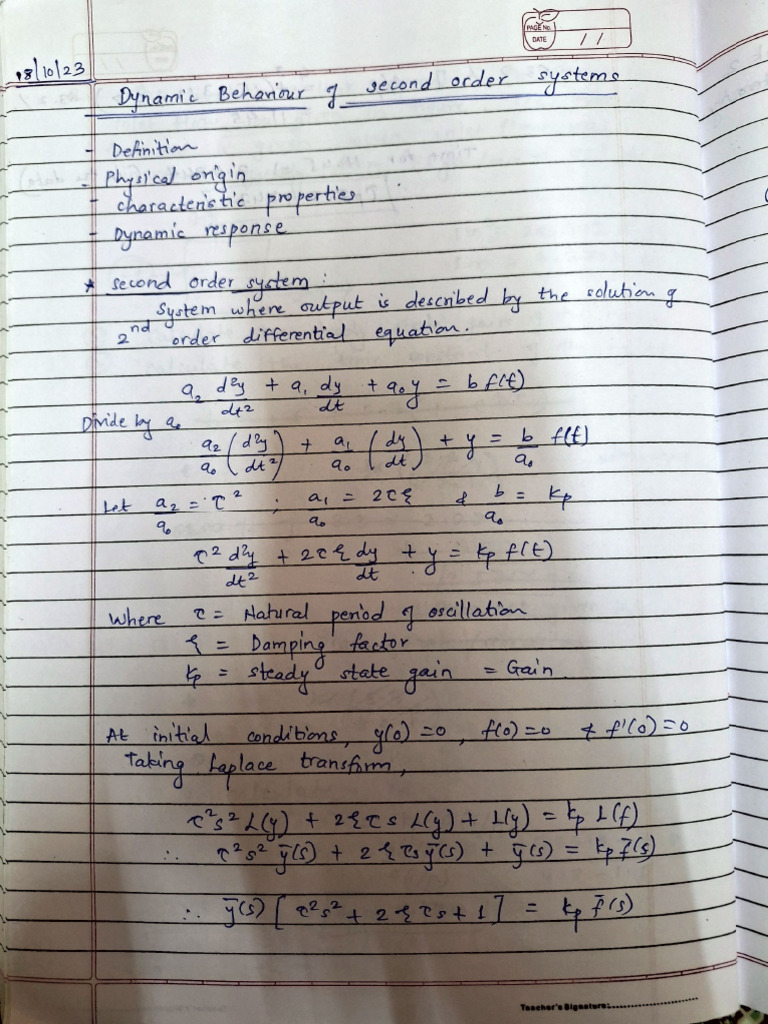 PAGE No.
DATE / /
18/10/23
Dynamic Behaviour of second order systems
- Definition
- Physical origin
- characteristic properties
- Dynamic response
* second order system :
System where output is described by the solution of
2nd order differential equation.
a₂ d²y/dt² + a₁ dy/dt + a₀y = b f(t)
Divide by a₀
a₂/a₀ (d²y/dt²) + a₁/a₀ (dy/dt) + y = b/a₀ f(t)
Let a₂/a₀ = τ² ; a₁/a₀ = 2τξ & b/a₀ = kp
τ² d²y/dt² + 2τξ dy/dt + y = kp f(t)
Where τ = Natural period of oscillation
ξ = Damping factor
kp = steady state gain = Gain
At initial conditions, y(0) = 0, f(0) = 0 & f'(0) = 0
Taking Laplace transform,
τ²s² L(y) + 2ξτs L(y) + L(y) = kp L(f)
∴ τ²s² ȳ(s) + 2ξτs ȳ(s) + ȳ(s) = kp f̄(s)
∴ ȳ(s) [τ²s² + 2ξτs + 1] = kp f̄(s)
Teacher's Signature: